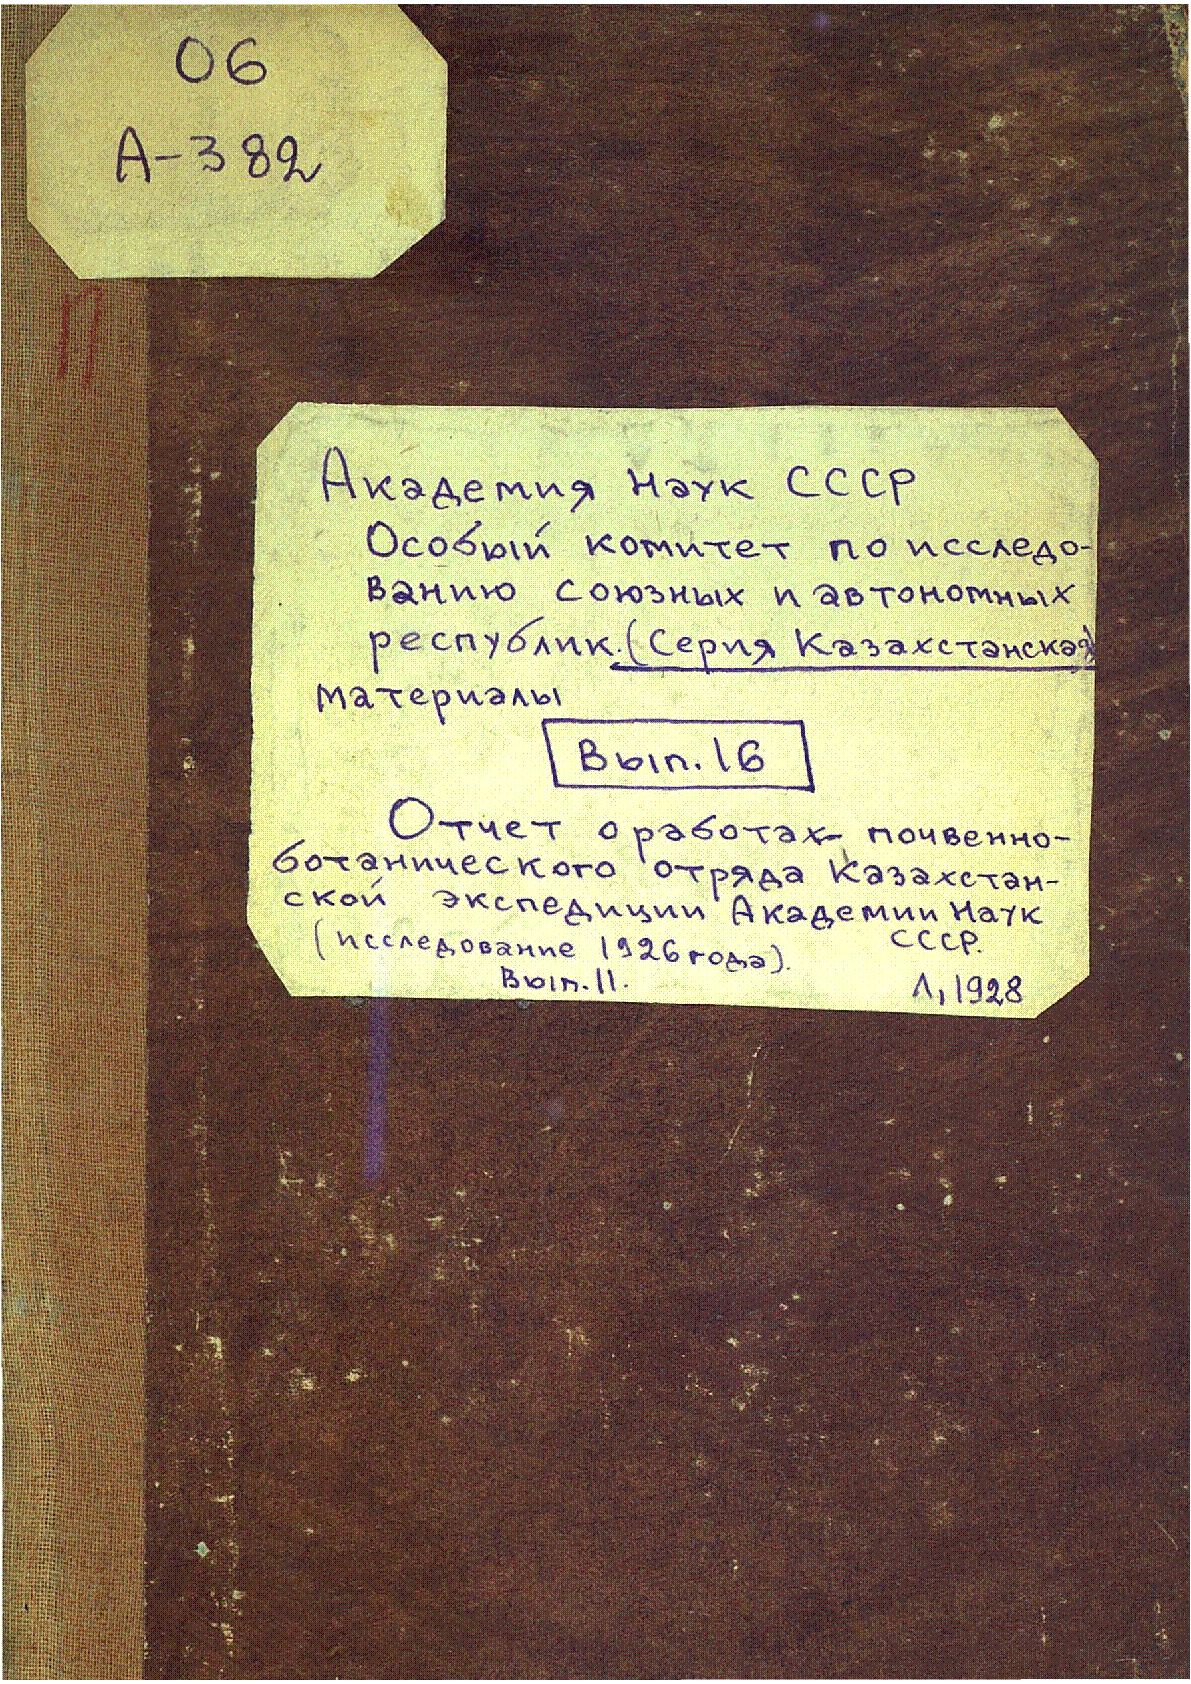 06
А-382
П
Академия Наук СССР
Особый комитет по исследо-
ванию союзных и автономных
республик. (Серия Казахстанская)
материалы
Вып. 16
Отчет о работах почвенно-
ботанического отряда Казахстан-
ской экспедиции Академии Наук
СССР.
(исследование 1926 года).
Вып. II.
Л, 1928